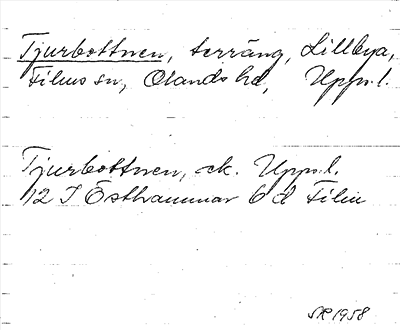 Tjurbottnen, terräng, Lillbya,
Films sn, Olands hd, Uppl.
Tjurbottnen, ek. Uppl.
12 I Östhammar 6 d Film
SR 1958